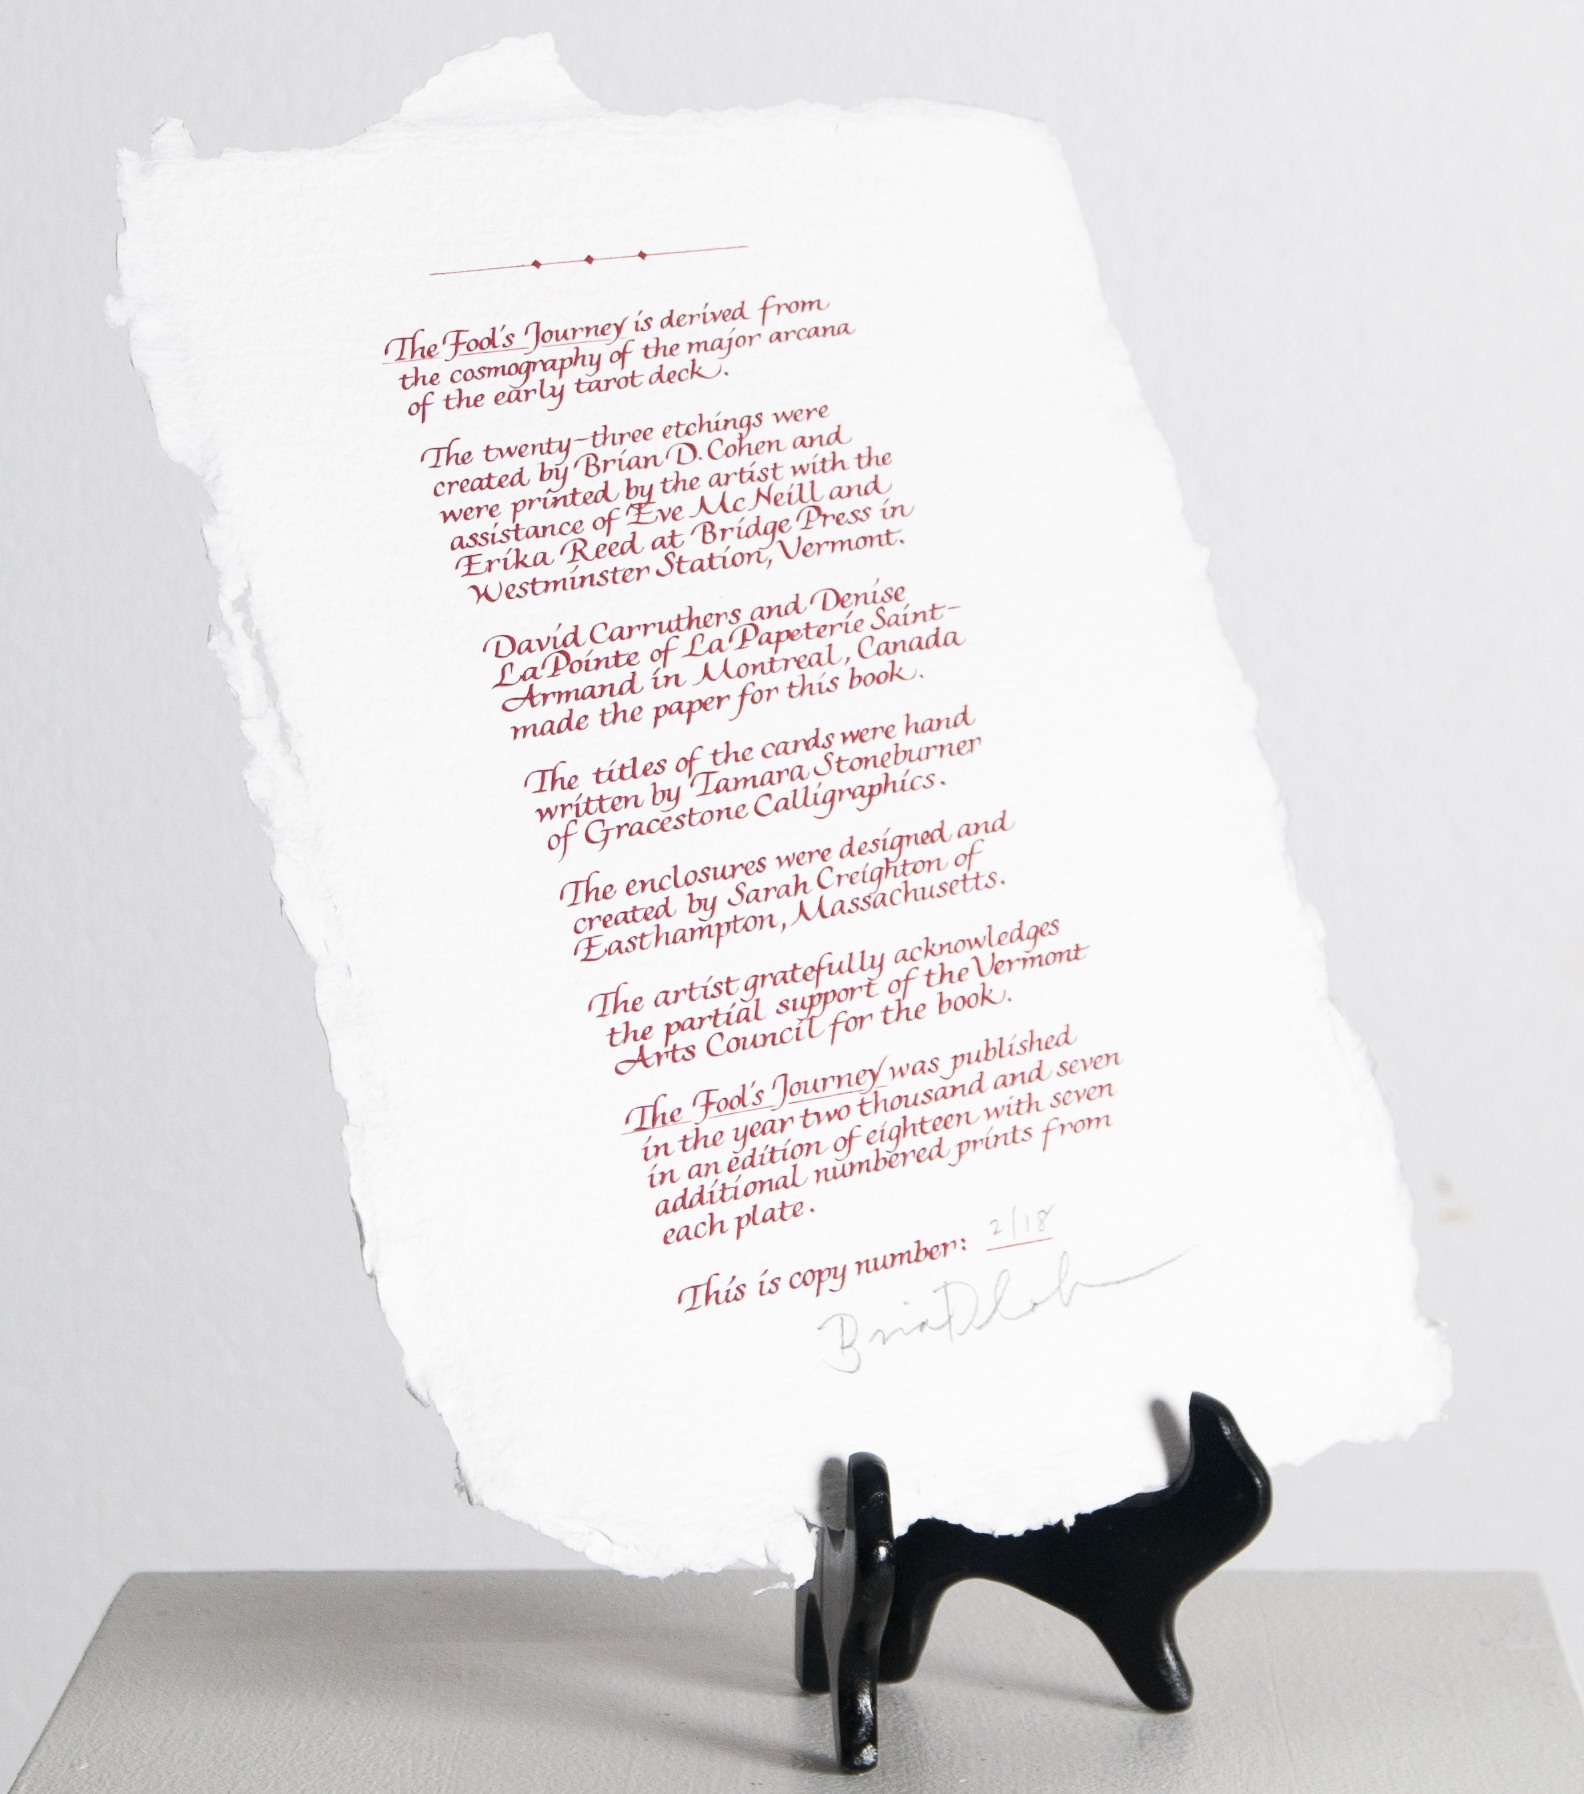 The Fool's Journey is derived from
the cosmography of the major arcana
of the early tarot deck.
The twenty-three etchings were
created by Brian D. Cohen and
were printed by the artist with the
assistance of Eve McNeill and
Erika Reed at Bridge Press in
Westminster Station, Vermont.
David Carruthers and Denise
LaPointe of La Papeterie Saint-
Armand in Montreal, Canada
made the paper for this book.
The titles of the cards were hand
written by Tamara Stoneburner
of Gracestone Calligraphics.
The enclosures were designed and
created by Sarah Creighton of
Easthampton, Massachusetts.
The artist gratefully acknowledges
the partial support of the Vermont
Arts Council for the book.
The Fool's Journey was published
in the year two thousand and seven
in an edition of eighteen with seven
additional numbered prints from
each plate.
This is copy number: 2/18
Brian D Cohen